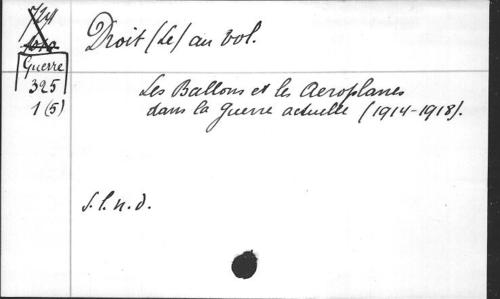 Droit (Le) au vol.
Guerre
325
1 (5)
Les Ballons et les Aeroplanes
dans la guerre actuelle (1914-1918).
s.l.n.d.